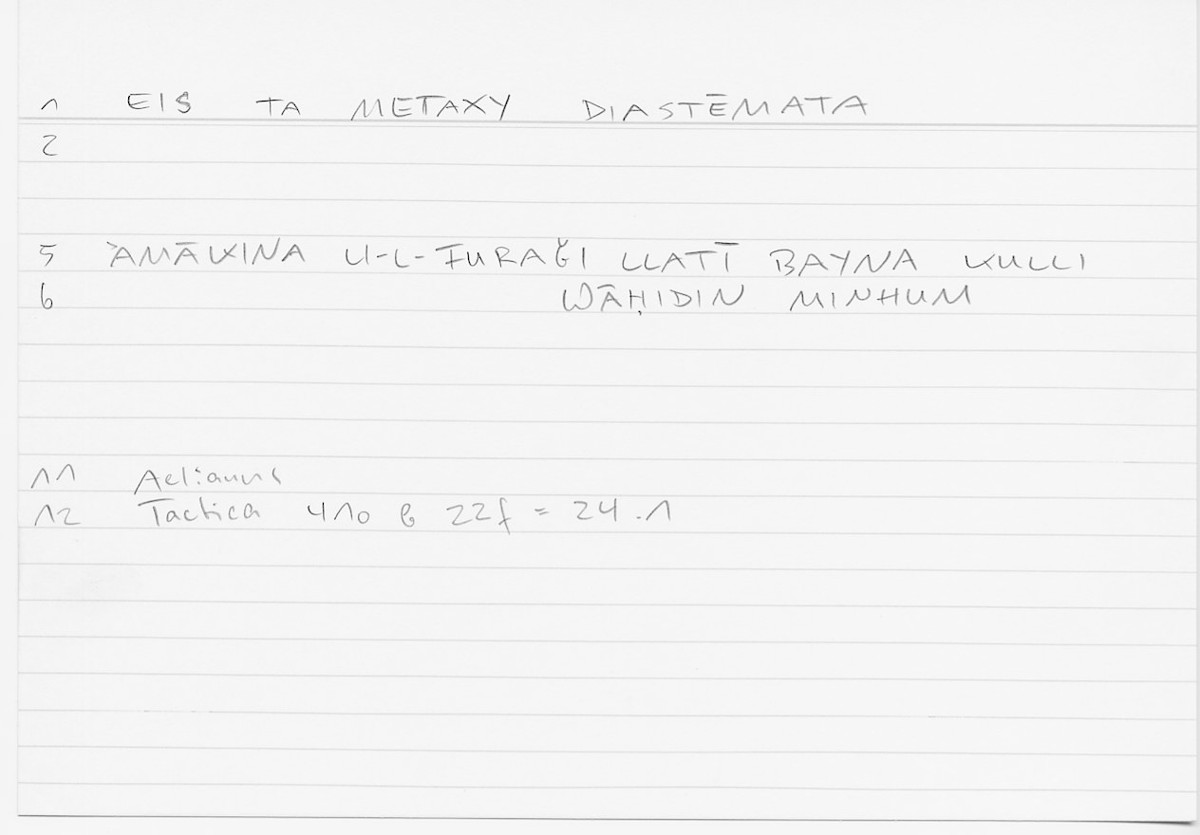 1 EIS TA METAXY DIASTĒMATA
2
5 ʾAMĀKINA U-L-FURAǦI LLATĪ BAYNA KULLI
6 WĀḤIDIN MINHUM
11 Aelianus
12 Tactica 410 b 22f = 24.1